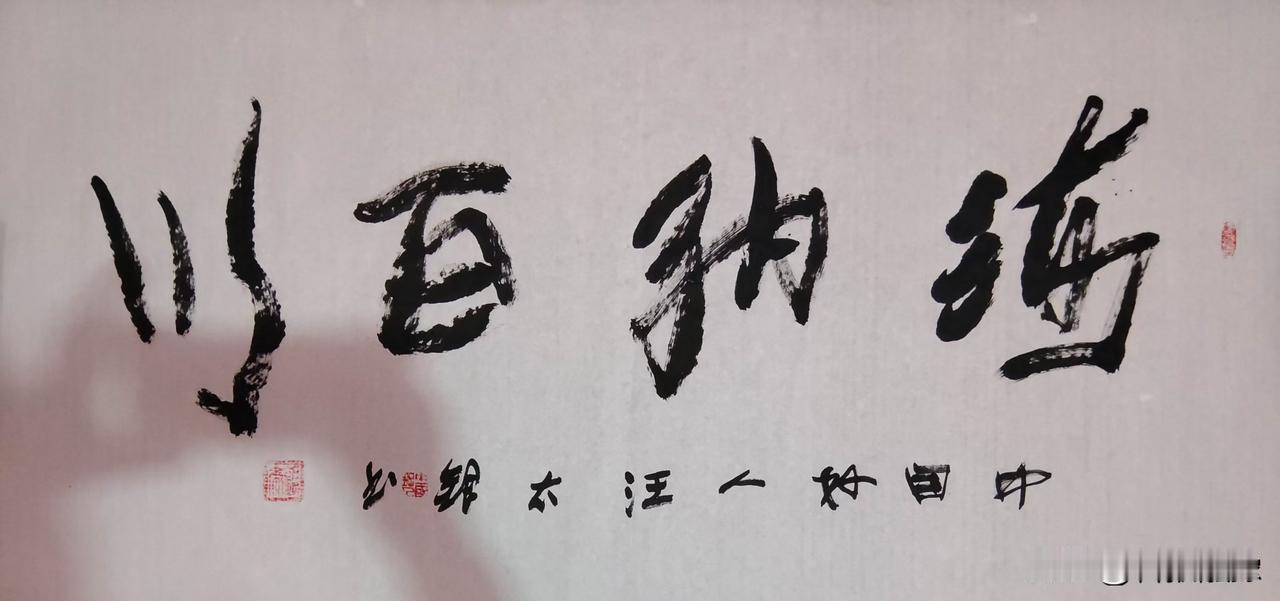 海纳百川
中国好人汪太银书